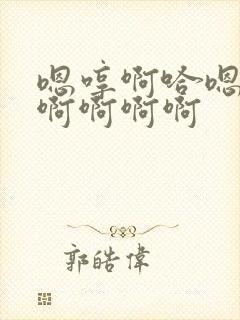 嗯哼啊哈嗯
啊啊啊啊
郭皓偉